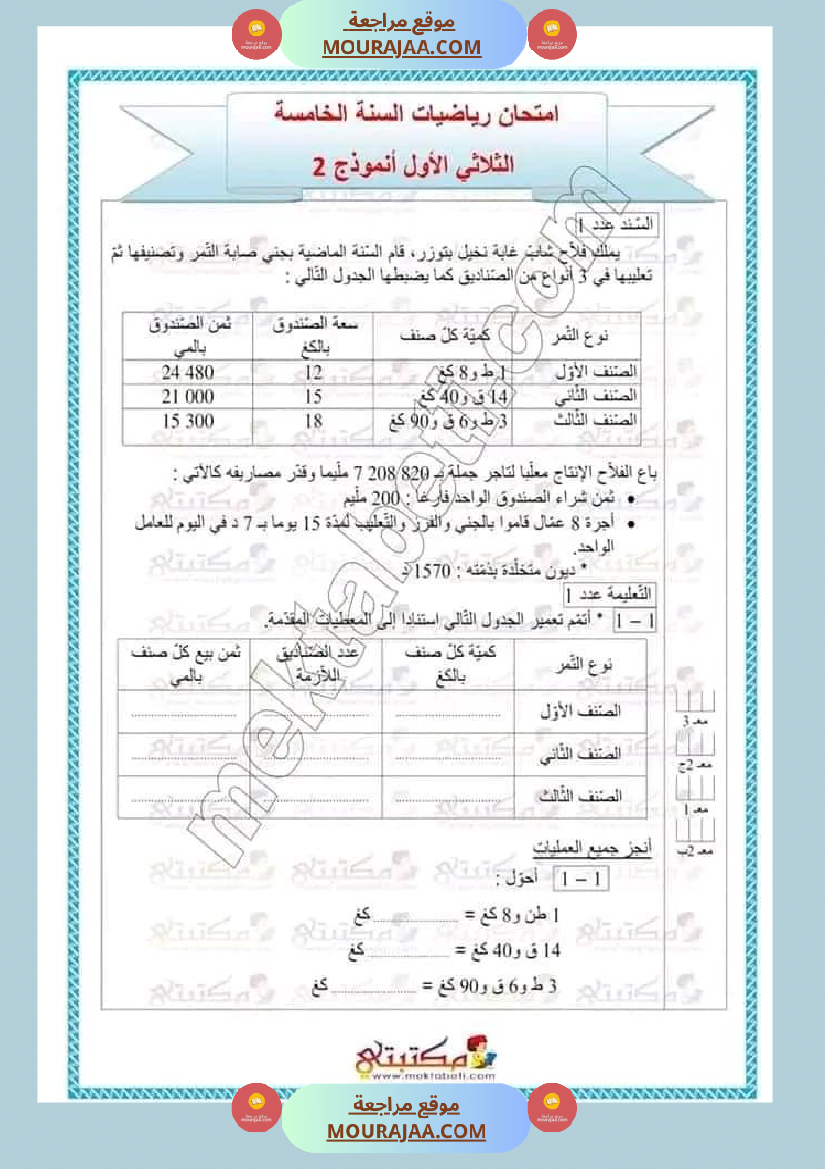 موقع مراجعة
MOURAJAA.COM
امتحان رياضيات السنة الخامسة
الثلاثي الأول أنموذج 2
السّند عدد 1
يملك فلاّح شابّ غابة نخيل بتوزر، قام السّنة الماضية بجني صابة التّمر وتصنيفها ثمّ
تعليبها في 3 أنواع من الصّناديق كما يضبطها الجدول التّالي :
نوع التّمر | كميّة كلّ صنف | سعة الصّندوق بالكغ | ثمن الصّندوق بالمي
الصّنف الأوّل | 1 ط و8 كغ | 12 | 24 480
الصّنف الثّاني | 14 ق و40 كغ | 15 | 21 000
الصّنف الثّالث | 3 ط و6 ق و90 كغ | 18 | 15 300
باع الفلاّح الإنتاج معلّبا لتاجر جملة بـ 820 208 7 ملّيما وقدّر مصاريفه كالآتي :
• ثمن شراء الصندوق الواحد فارغا : 200 ملّيم
• أجرة 8 عمّال قاموا بالجني والفرز والتّعليب لمدّة 15 يوما بـ 7 د في اليوم للعامل
الواحد.
* ديون متخلّدة بذمّته : 1570 د
التّعليمة عدد 1
1 – 1 * أتمّم تعمير الجدول التّالي استنادا إلى المعطيات المقدّمة.
نوع التّمر | كميّة كلّ صنف بالكغ | عدد الصّناديق اللاّزمة | ثمن بيع كلّ صنف بالمي
الصّنف الأوّل | .............................. | .............................. | ..............................
الصّنف الثّاني | .............................. | .............................. | ..............................
الصّنف الثّالث | .............................. | .............................. | ..............................
معـ 3
معـ 2ج
معـ 1
معـ 2ب
أنجز جميع العمليات
1 – 1 أحوّل :
1 طن و8 كغ = ........................ كغ
14 ق و40 كغ = ........................ كغ
3 ط و6 ق و90 كغ = ........................ كغ
mektabeti.com
مكتبتي
www.mektabeti.com
موقع مراجعة
MOURAJAA.COM